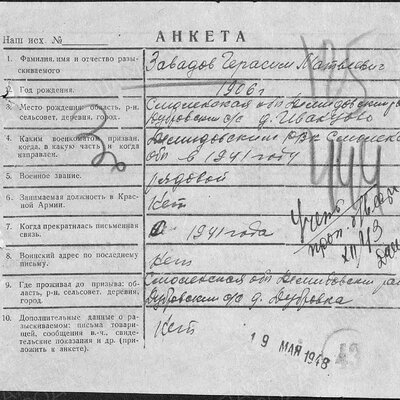 АНКЕТА
Наш исх. №
1. Фамилия, имя и отчество разы-
скиваемого
Завадов Герасим Матвеевич
2. Год рождения.
1906 г
3. Место рождения: область, р-н,
сельсовет, деревня, город.
Смоленская обл Демидовский
Дубровский с/с д.
4. Каким военкоматом призван,
когда, в какую часть и когда
направлен.
Демидовским РВК Смоленск
обл в 1941 году
5. Военное звание.
рядовой
6. Занимаемая должность в Крас-
ной Армии.
Нет
7. Когда прекратилась письменная
связь.
1941 года
8. Воинский адрес по последнему
письму.
Нет
9. Где проживал до призыва: об-
ласть, р-н, сельсовет, деревня,
город.
Смоленская обл Демидовский
Дубровский с/с д. Дубровка
10. Дополнительные данные о ра-
зыскиваемом: письма товари-
щей, сообщения в.-ч., свиде-
тельские показания и др. (при-
ложить к анкете).
Нет
Учесть
проп.
XII/43
19 МАЯ 1948
43